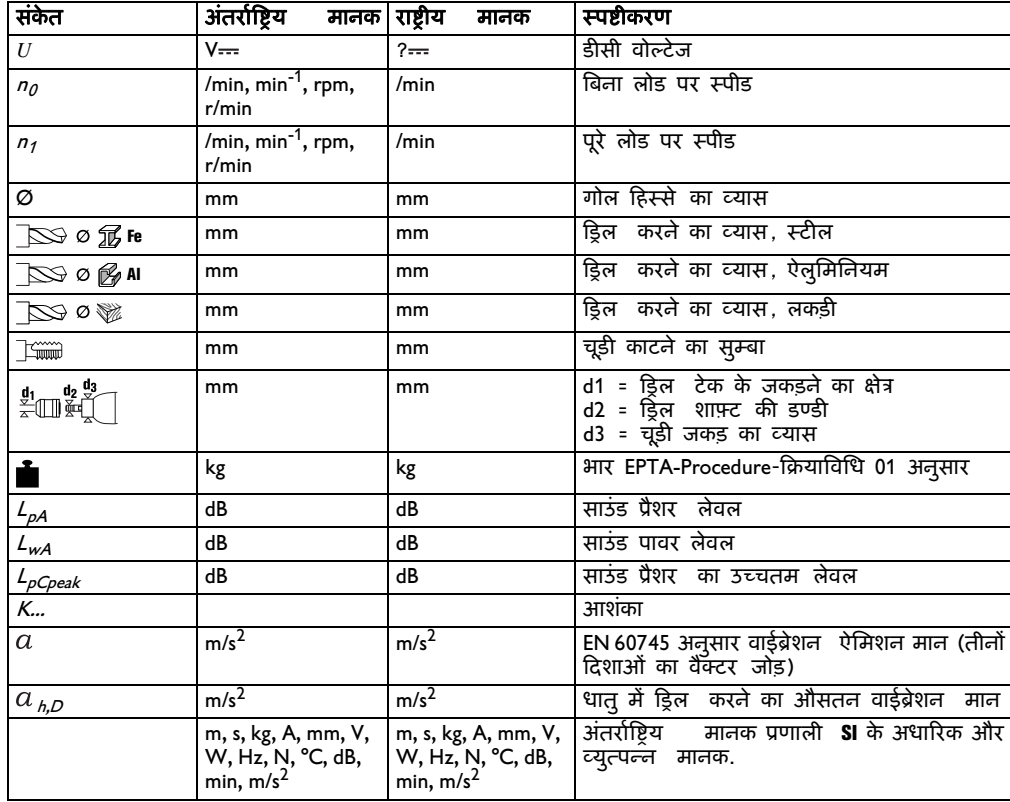 संकेत अंतर्राष्ट्रिय मानक राष्ट्रीय मानक स्पष्टीकरण
U V⎓ ?⎓ डीसी वोल्टेज
n0 /min, min-1, rpm, r/min /min बिना लोड पर स्पीड
n1 /min, min-1, rpm, r/min /min पूरे लोड पर स्पीड
Ø mm mm गोल हिस्से का व्यास
Ø Fe mm mm ड्रिल करने का व्यास, स्टील
Ø Al mm mm ड्रिल करने का व्यास, ऐलुमिनियम
Ø mm mm ड्रिल करने का व्यास, लकड़ी
mm mm चूड़ी काटने का सुम्बा
d1 d2 d3 mm mm d1 = ड्रिल टेक के जकड़ने का क्षेत्र
d2 = ड्रिल शाफ़्ट की डण्डी
d3 = चूड़ी जकड़ का व्यास
kg kg भार EPTA-Procedure-क्रियाविधि 01 अनुसार
LpA dB dB साउंड प्रैशर लेवल
LwA dB dB साउंड पावर लेवल
LpCpeak dB dB साउंड प्रैशर का उच्चतम लेवल
K... आशंका
a m/s2 m/s2 EN 60745 अनुसार वाईब्रेशन ऐमिशन मान (तीनों
दिशाओं का वैक्टर जोड़)
a h,D m/s2 m/s2 धातु में ड्रिल करने का औसतन वाईब्रेशन मान
m, s, kg, A, mm, V, m, s, kg, A, mm, V, अंतर्राष्ट्रिय मानक प्रणाली SI के अधारिक और
W, Hz, N, °C, dB, W, Hz, N, °C, dB, व्युत्पन्न मानक.
min, m/s2 min, m/s2